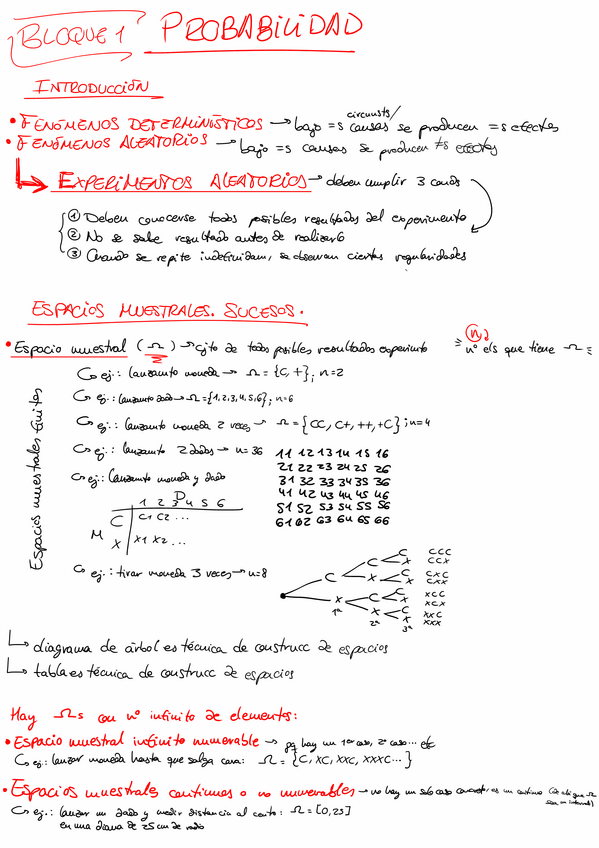 BLOQUE 1 PROBABILIDAD
INTRODUCCIÓN
• FENÓMENOS DETERMINÍSTICOS → bajo =s causas se producen =s efectos
• FENÓMENOS ALEATORIOS → bajo =s causas se producen ≠s efectos
EXPERIMENTOS ALEATORIOS → deben cumplir 3 conds
① Deben conocerse todos posibles resultados del experimento
② No se sabe resultado antes de realizarlo
③ Cuando se repite indefinidam, se observan ciertas regularidades
ESPACIOS MUESTRALES. SUCESOS.
• Espacio muestral (Ω) → cjto de todos posibles resultados experimto
n
nº els que tiene Ω
Espacios muestrales finitos
ej.: lanzamto moneda → Ω = {C, +}; n=2
ej.: lanzamto dado → Ω = {1,2,3,4,5,6}; n=6
ej.: lanzamto moneda 2 veces → Ω = {CC, C+, ++, +C}; n=4
ej.: lanzamto 2 dados → n=36
11 12 13 14 15 16
21 22 23 24 25 26
31 32 33 34 35 36
41 42 43 44 45 46
51 52 53 54 55 56
61 62 63 64 65 66
ej.: lanzamto moneda y dado
D
1 2 3 4 5 6
C C1 C2 ...
M
X X1 X2 ...
ej.: tirar moneda 3 veces → n=8
C C C CCC
X CCX
X C CXC
X CXX
X C C XCC
X XCX
X C XXC
X XXX
1ª 2ª 3ª
diagrama de árbol es técnica de construcc de espacios
tabla es técnica de construcc de espacios
Hay Ωs con nº infinito de elementos:
• Espacio muestral infinito numerable → pq hay un 1er caso, 2º caso... etc
ej.: lanzar moneda hasta que salga cara: Ω = {C, XC, XXC, XXXC...}
• Espacios muestrales continuos o no numerables → no hay un solo caso es un continuo
ej.: lanzar un dardo y medir distancia al centro: Ω = [0,25]
en una diana de 25 cm de radio